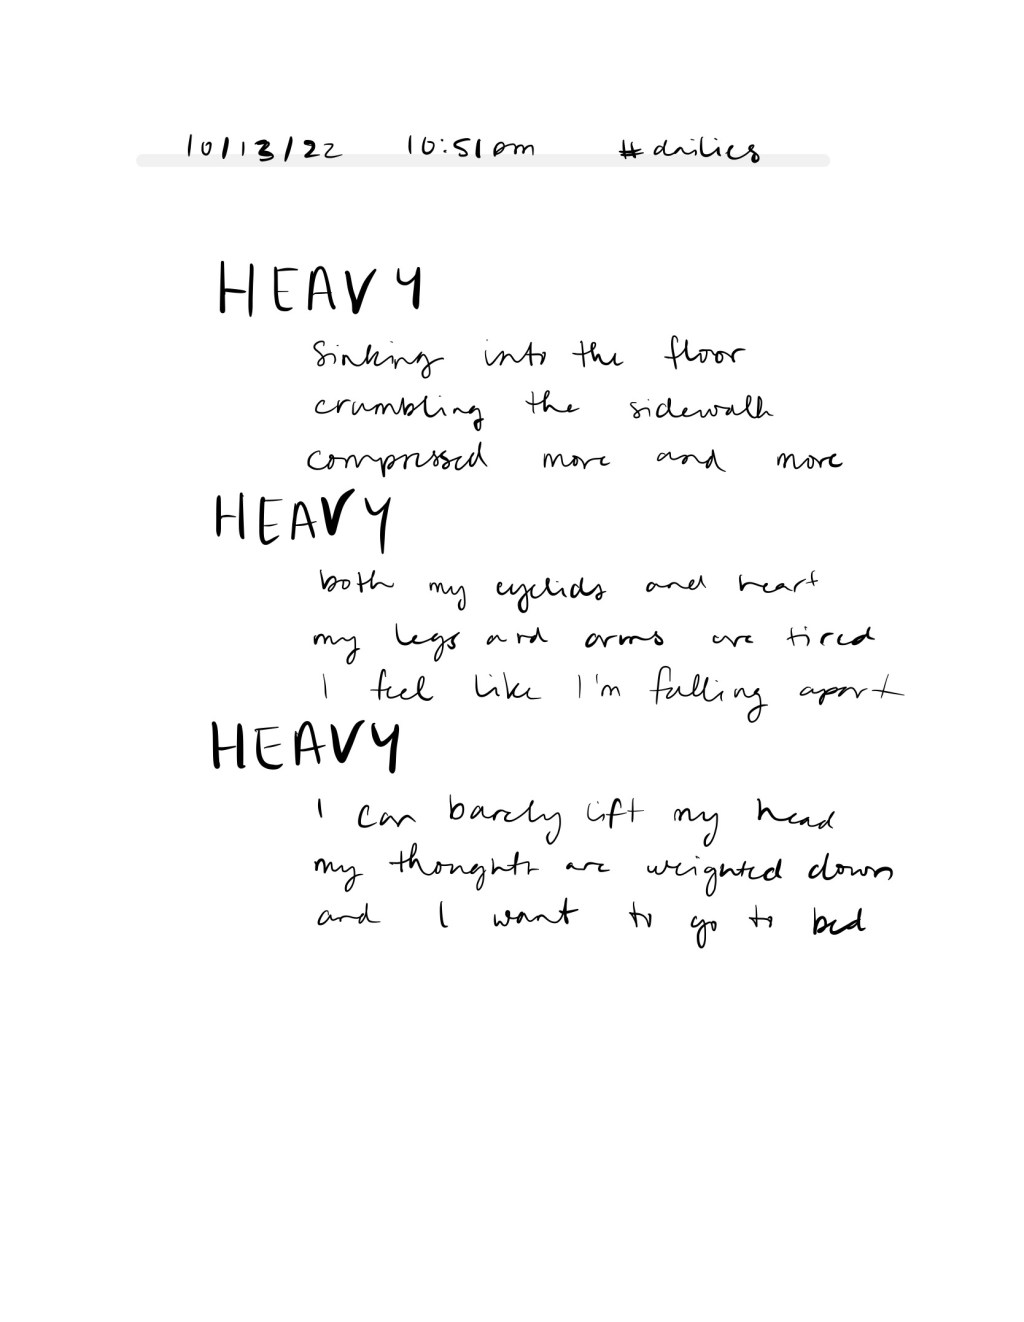 10/13/22 10:51pm #dailies
HEAVY
Sinking into the floor
crumbling the sidewalk
compressed more and more
HEAVY
both my eyelids and heart
my legs and arms are tired
I feel like I'm falling apart
HEAVY
I can barely lift my head
my thoughts are weighted down
and I want to go to bed